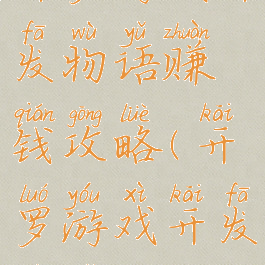 fā wù yǔ zhuàn
发物语赚
qián gōng lüè kāi
钱攻略(开
luó yóu xì kāi fā
罗游戏开发